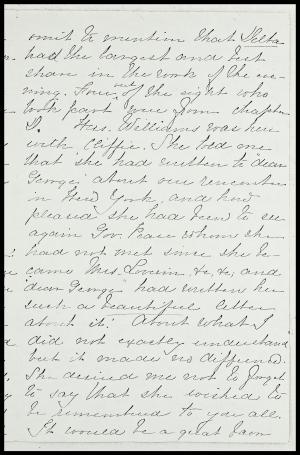 omit to mention that Delta
had the largest and best
share in the work of the eve-
ning. Four out of the eight who
took part were from chapter
I. Mrs. Williams was here
with Cliffie. She told me
that she had written to dear
George about our rencontre
in New York, and how
pleased she had been to see
again Gov. Pease whom she
had not met since she be-
came Mrs. &c, &c, and
"dear George" had written her
such a beautiful letter
about it! About what I
did not exactly understand
but it made no difference.
She desired me not to forget
to say that she wished to
be remembered to you all.
It would be a great